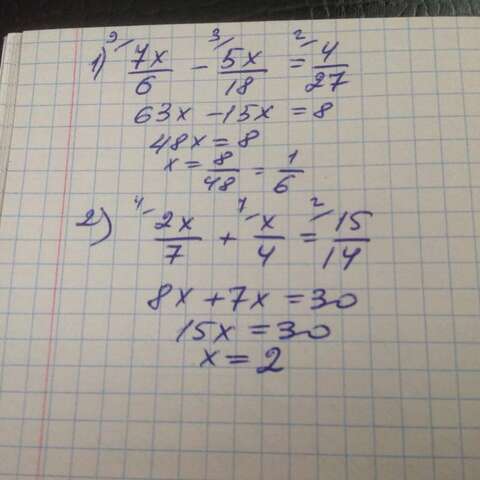 1) 9/ 7x/6 - 3/ 5x/18 = 2/ 4/27
63x - 15x = 8
48x = 8
x = 8/48 = 1/6
2) 4/ 2x/7 + 7/ x/4 = 2/ 15/14
8x + 7x = 30
15x = 30
x = 2